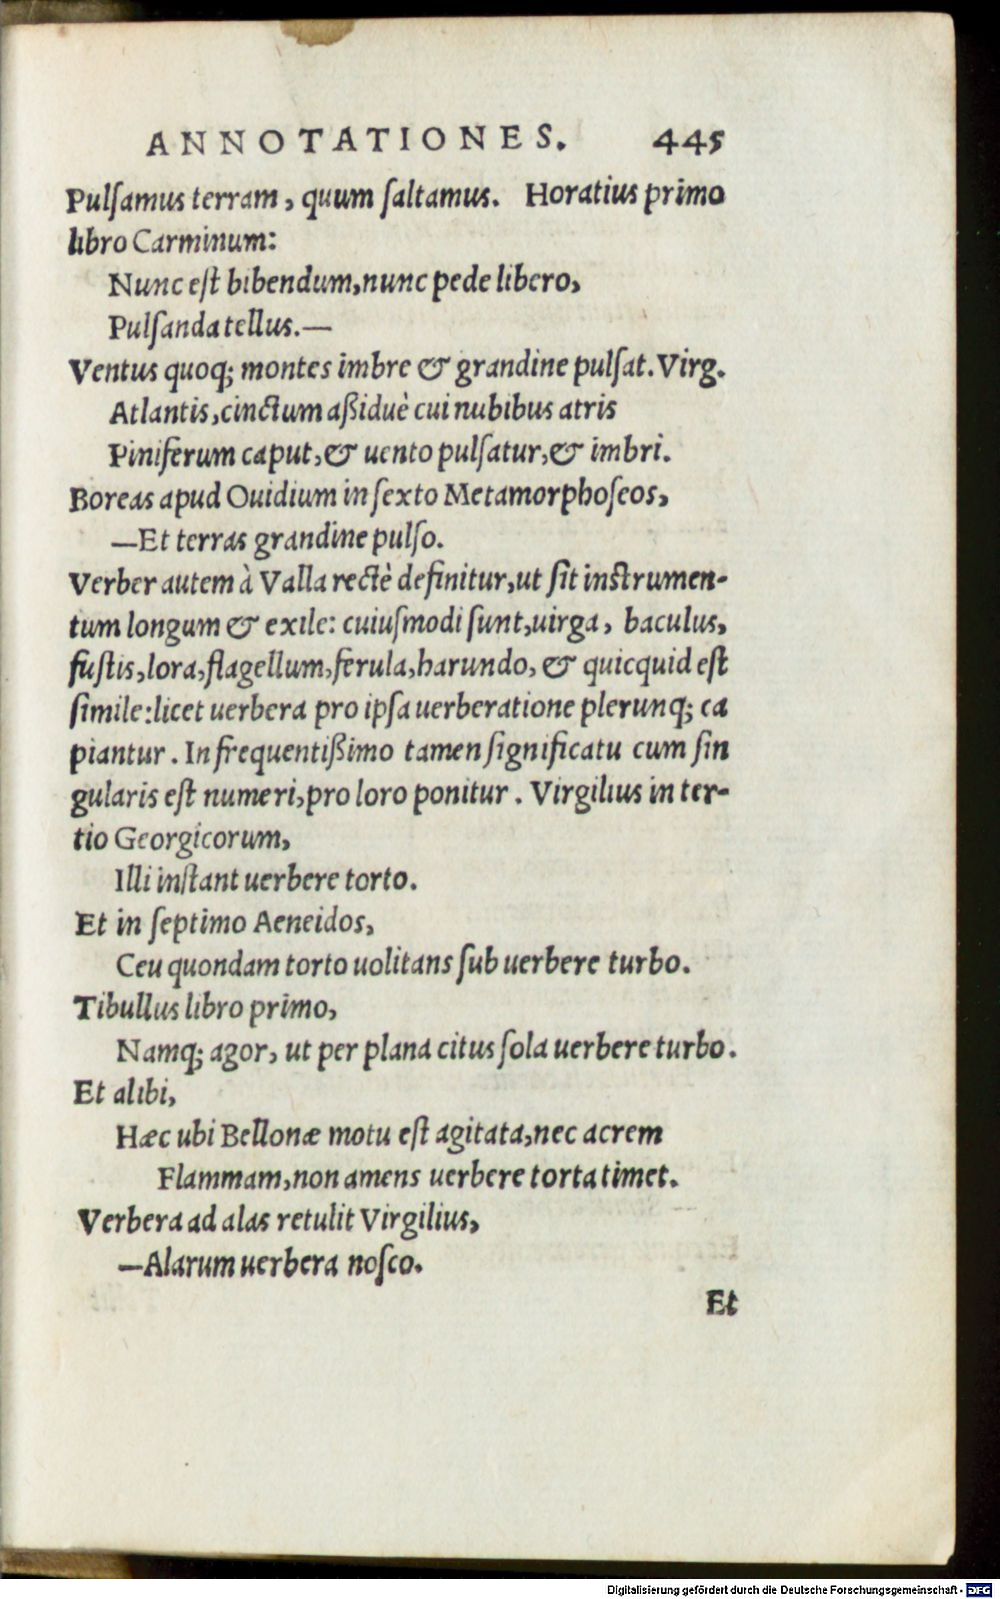 ANNOTATIONES. 445
Pulſamus terram, quum ſaltamus. Horatius primo
libro Carminum:
Nunc eſt bibendum, nunc pede libero,
Pulſanda tellus.—
Ventus quoq; montes imbre & grandine pulſat. Virg.
Atlantis, cinctum aßiduè cui nubibus atris
Piniferum caput, & uento pulſatur, & imbri.
Boreas apud Ouidium in ſexto Metamorphoſeos,
—Et terras grandine pulſo.
Verber autem à Valla rectè definitur, ut ſit inſtrumen-
tum longum & exile: cuiuſmodi ſunt, uirga, baculus,
fuſtis, lora, flagellum, ferula, harundo, & quicquid eſt
ſimile: licet uerbera pro ipſa uerberatione plerunq; ca
piantur. In frequentißimo tamen ſignificatu cum ſin
gularis eſt numeri, pro loro ponitur. Virgilius in ter-
tio Georgicorum,
Illi inſtant uerbere torto.
Et in ſeptimo Aeneidos,
Ceu quondam torto uolitans ſub uerbere turbo.
Tibullus libro primo,
Namq; agor, ut per plana citus ſola uerbere turbo.
Et alibi,
Hæc ubi Bellonæ motu eſt agitata, nec acrem
Flammam, non amens uerbere torta timet.
Verbera ad alas retulit Virgilius,
—Alarum uerbera noſco.
Et
Digitalisierung gefördert durch die Deutsche Forschungsgemeinschaft - DFG